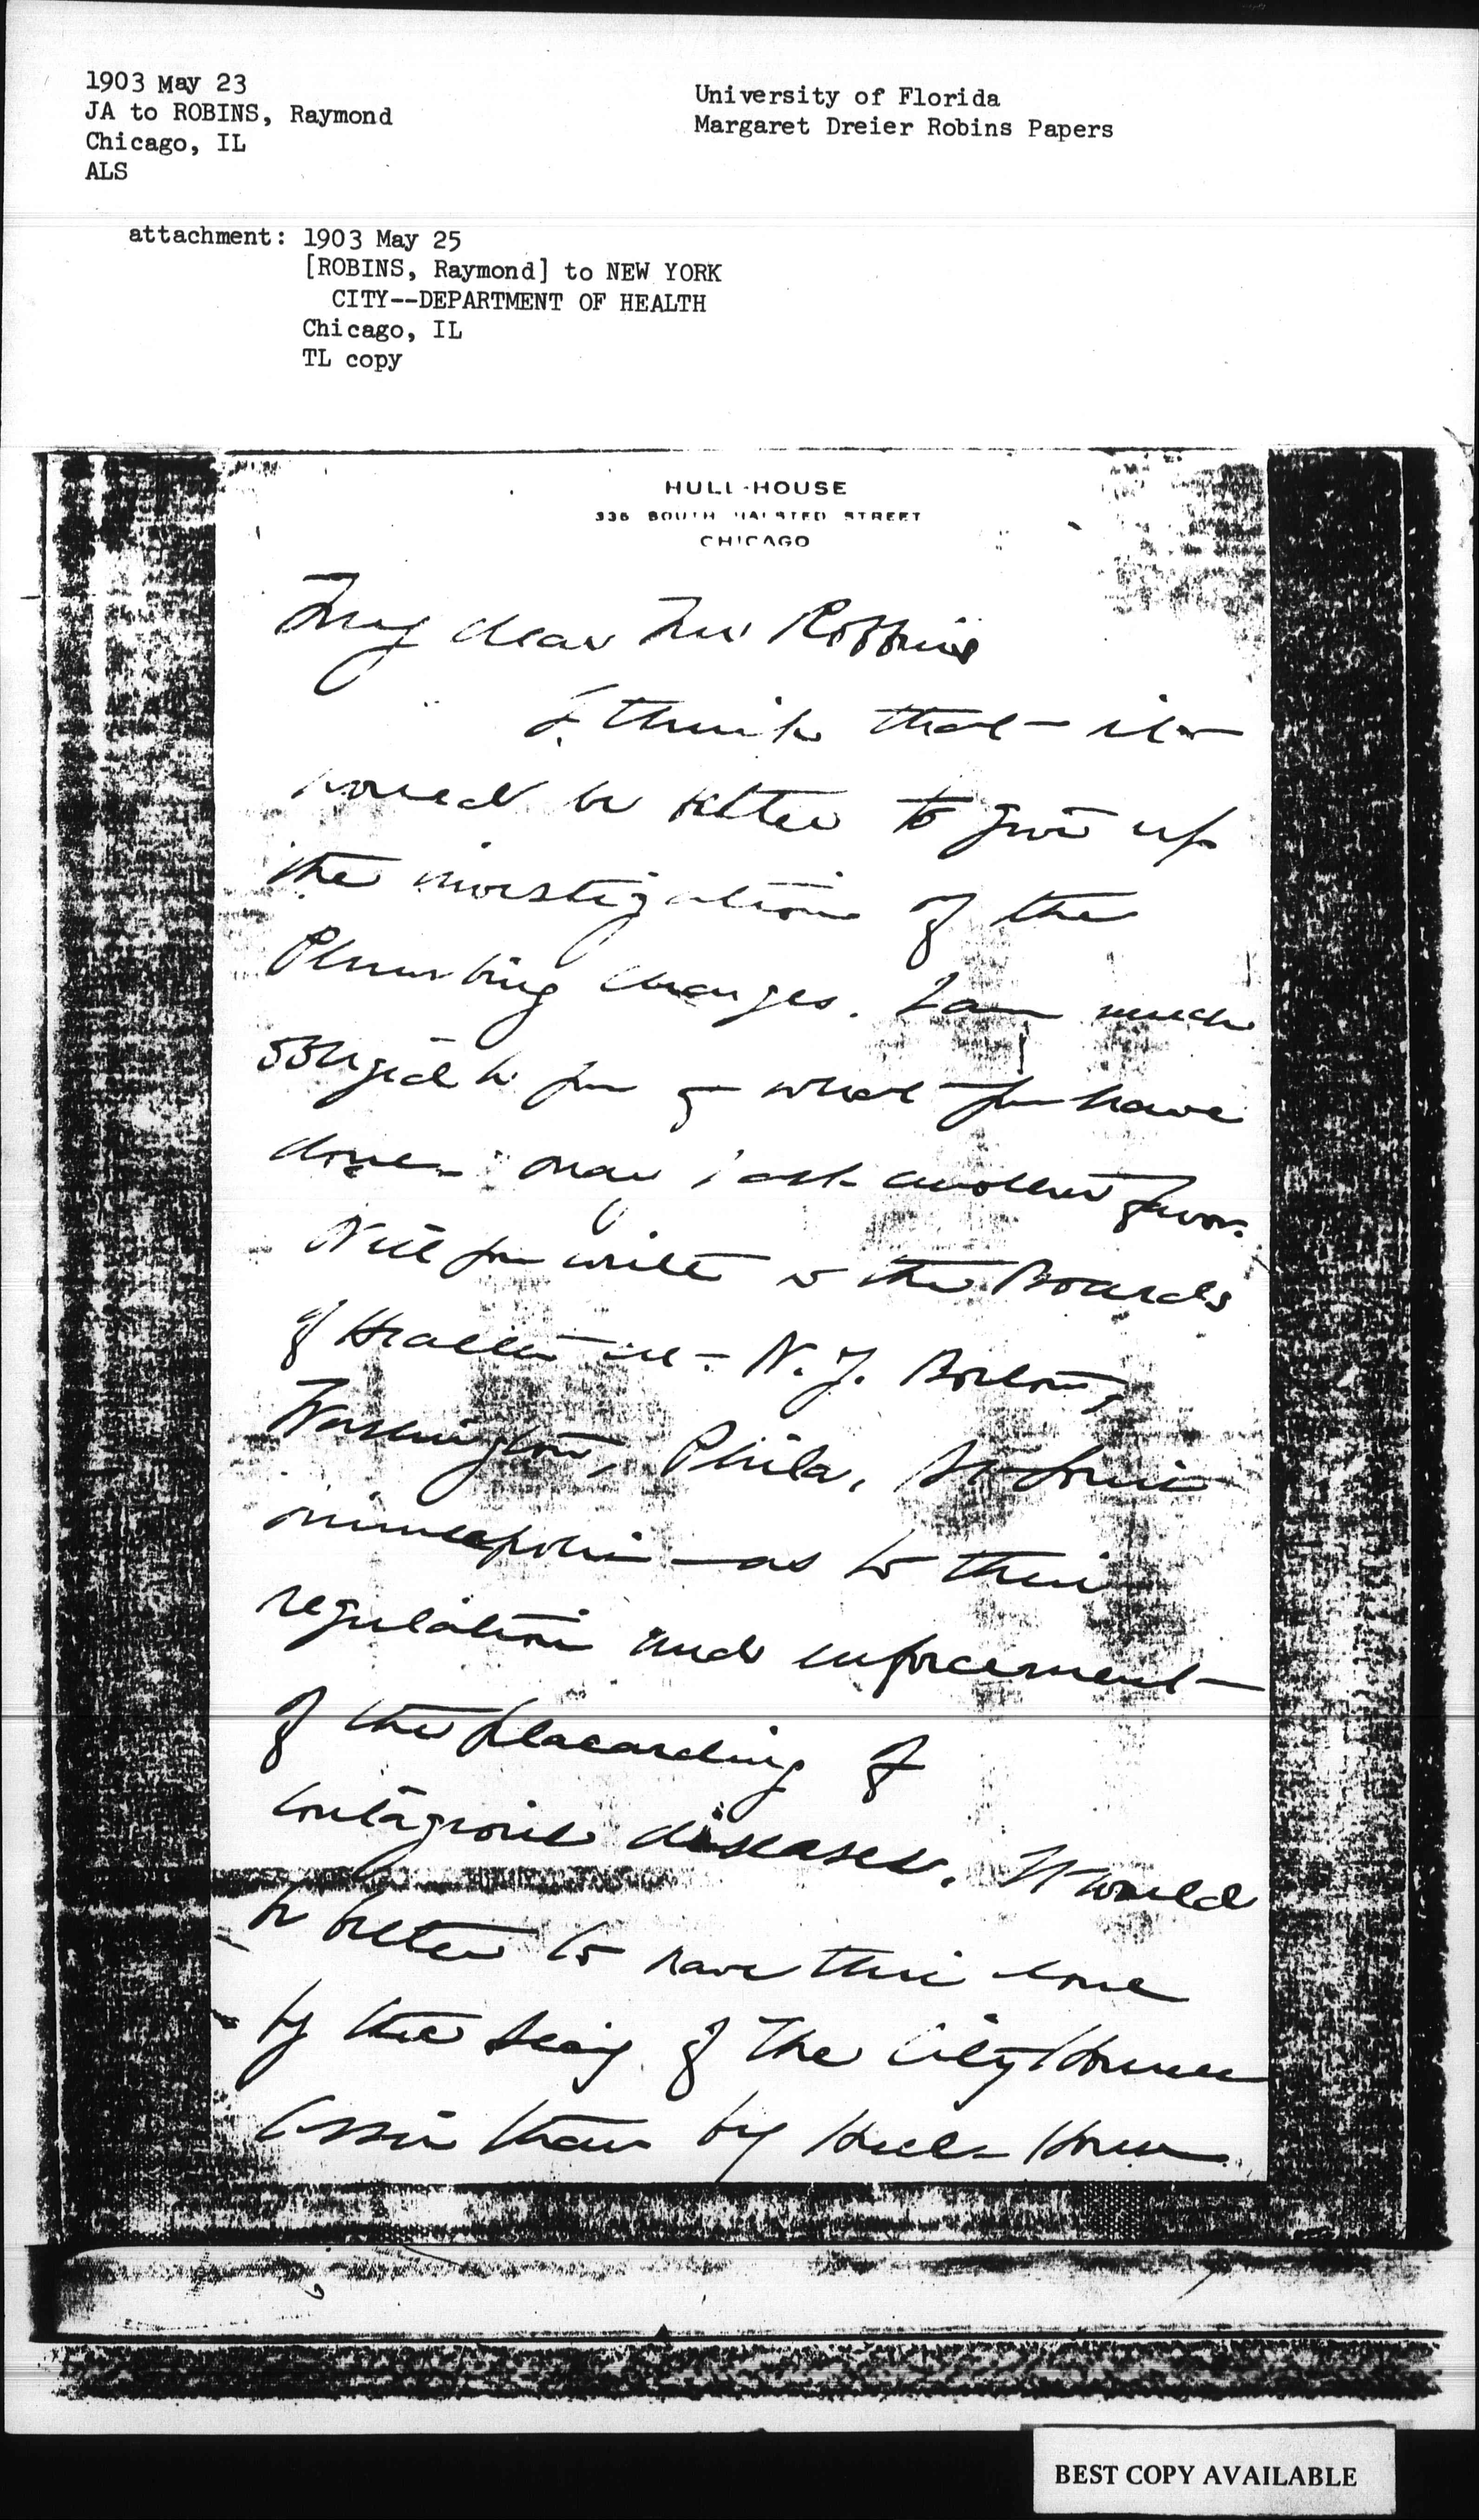 1903 May 23
JA to ROBINS, Raymond
Chicago, IL
ALS
University of Florida
Margaret Dreier Robins Papers
attachment: 1903 May 25
[ROBINS, Raymond] to NEW YORK
CITY--DEPARTMENT OF HEALTH
Chicago, IL
TL copy
HULL-HOUSE
335 SOUTH HALSTED STREET
CHICAGO
My dear Mr Robbins
I think that it
would be better to give up
the investigation of the
Plumbing charges. I am much
obliged to you for what you have
done. May I ask another favor.
Will you write to the Boards
of Health in N.Y. Boston,
Washington, Phila, St Louis
Minneapolis as to their
regulation and enforcement
of the placarding of
contagious diseases. It would
be better to have this done
by the Secy. of The City Homes
Assn than by Hull House.
BEST COPY AVAILABLE